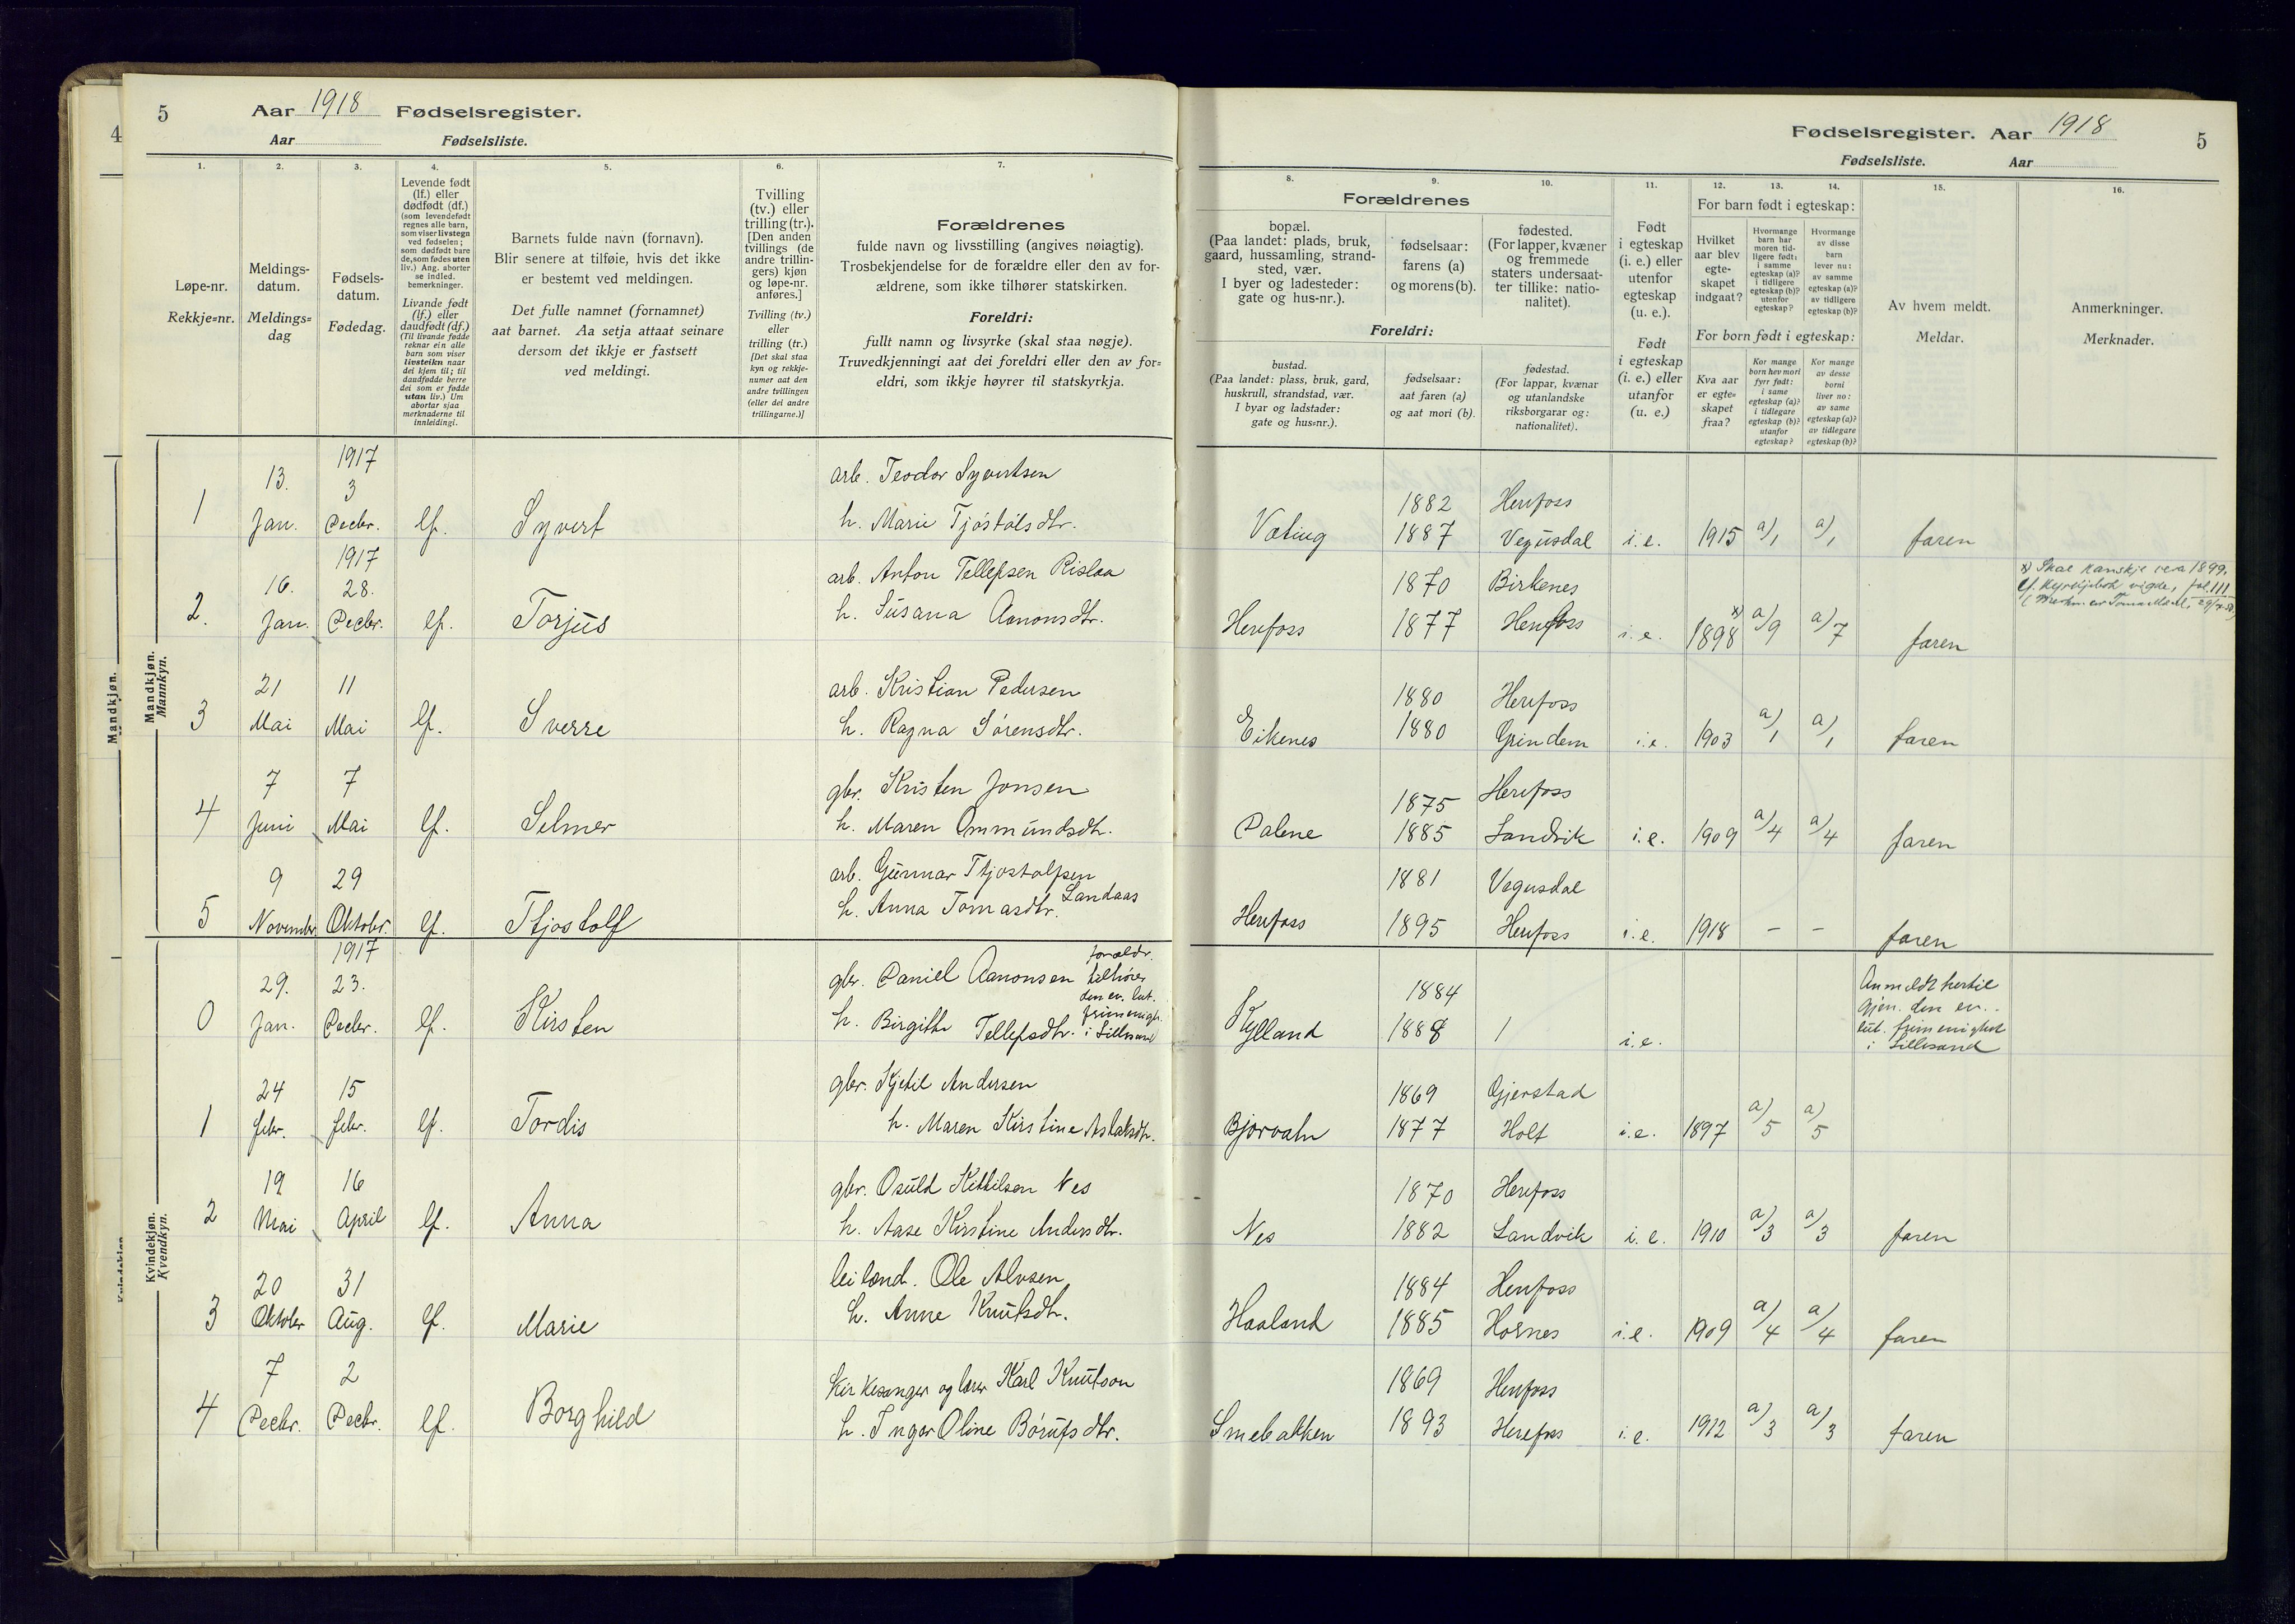 4
5
Aar 1918 Fødselsregister.
Aar Fødselsliste.
1.
2.
3.
4.
5.
6.
7.
Løpe-nr.
Rekkje=nr.
Meldings-
datum.
Meldings=
dag
Fødsels-
datum.
Fødedag.
Levende født
(lf.) eller
dødfødt (df.)
(som levendefødt
regnes alle barn,
som viser livstegn
ved fødselen;
som dødfødt bare
de, som fødes uten
liv.) Ang. aborter
se indled.
bemerkninger.
Livande født
(lf.) eller
daudfødt (df.)
(Til livande fødde
reknar ein alle
barn som viser
livsteikn naar
dei kjem til; til
daudfødde berre
dei som er fødde
utan liv.) Um
abortar sjaa
merknaderne til
innleidingi.
Barnets fulde navn (fornavn).
Blir senere at tilføie, hvis det ikke
er bestemt ved meldingen.
Det fulle namnet (fornamnet)
aat barnet. Aa setja attaat seinare
dersom det ikkje er fastsett
ved meldingi.
Tvilling
(tv.) eller
trilling (tr.).
[Den anden
tvillings (de
andre trillin-
gers) kjøn
og løpe-nr.
anføres.]
Tvilling (tv.)
eller
trilling (tr.)
[Det skal staa
kyn og rekkje-
numer aat den
andre tvillingen
(eller dei andre
trillingarne.)]
Forældrenes
fulde navn og livsstilling (angives nøiagtig).
Trosbekjendelse for de forældre eller den av for-
ældrene, som ikke tilhører statskirken.
Foreldri:
fullt namn og livsyrke (skal staa nøgje).
Truvedkjenningi aat dei foreldri eller den av for=
eldri, som ikkje høyrer til statskyrkja.
Mandkjøn.
Mandkjøn.
Mannkyn.
1917
13. 3 arb. Teodor Syvertsen
1 Jan. Decbr. lf. Syvert h. Marie Tjóstólsdtr.
1917
16. 28. arb. Anton Tellefsen Rislaa
2. Jan. Decbr. lf. Torjus h. Susana Aanonsdtr.
21 11 arb. Kristian Pedersen
3 Mai Mai lf. Sverre h. Ragna Sørensdtr.
7 7 gbr. Kristen Jonsen
4 Juni Mai lf. Selmer h. Maren Ommundsdtr.
9 29 arb. Gunnar Tfjostolfsen
Landaas
5 November Oktober. lf. Tfjostolf h. Anna Tomasdtr.
Kvindekjøn.
Kvendkyn.
1917 forældr.
29. 23. gbr. Daniel Aanonsen tilhører
den ev. lut.
frimenigh.
0 Jan. Decbr. lf. Kirsten h. Birgitte Tellefsdtr. i Lillesand
24 15 gbr. Kjetil Andersen
1 febr. febr. lf. Tordis h. Maren Kirstine Aslaksdtr.
19 16 gbr. Osuld Kittilsen Nes
2 Mai April lf. Anna h. Aase Kirstine Andersdtr.
20 31 leilænd. Ole Alvsen
3 Oktober Aug. lf. Marie h. Anne Knutsdtr.
7 2 Kirkesanger og lærer Karl Knutson
4 Decbr. Decbr. lf. Borghild h. Inger Oline Bórufsdtr.
Fødselsregister. Aar 1918
5
Fødselsliste. Aar
8.
9.
10.
11.
12.
13.
14.
15.
16.
Forældrenes
bopæl.
(Paa landet: plads, bruk,
gaard, hussamling, strand-
sted, vær.
I byer og ladesteder:
gate og hus-nr.).
fødselsaar:
farens (a)
og morens (b).
fødested.
(For lapper, kvæner
og fremmede
staters undersaat-
ter tillike: natio-
nalitet).
Foreldri:
bustad.
(Paa landet: plass, bruk, gard,
huskrull, strandstad, vær.
I byar og ladstader:
gate og hus=nr.).
fødselsaar:
aat faren (a)
og aat mori (b).
fødestad.
(For lappar, kvænar
og utanlandske
riksborgarar og:
nationalitet).
Født
i egteskap
(i. e.) eller
utenfor
egteskap
(u. e.).
Født
i egteskap
(i. e.) eller
utanfor
(u. e.)
For barn født i egteskap:
Hvilket
aar blev
egte-
skapet
indgaat?
Hvormange
barn har
moren tid-
ligere født:
i samme
egteskap (a)?
i tidligere
egteskap (b)?
utenfor
egteskap?
Hvormange
av disse
barn
lever nu:
av samme
egteskap (a)?
av tidligere
egteskap (b)?
For born født i egteskap:
Kva aar
er egte=
skapet
fraa?
Kor mange
born hev mori
fyrr født:
i same
egteskap (a)?
i tidlegare
egteskap (b)?
utanfor
egteskap?
Kor mange
av desse
borni
liver no:
av same
egteskap (a)?
av tidlegare
egteskap (b)?
Av hvem meldt.
Meldar.
Anmerkninger.
Merknader.
1882 Herefoss
Væting 1887 Vegusdal i.e. 1915 a/1 a/1 faren
x) Skal kanskje vera 1899,
1870 Birkenes
Herefoss 1877 Herefoss i.e. 1898 x) a/9 a/7 faren
1880 Herefoss
Eikenes 1880 Grindem i.e. 1903 a/1 a/1 faren
1875 Herefoss
Dalene 1885 Landvik i.e. 1909 a/4 a/4 faren
1881 Vegusdal
Herefoss 1895 Herefoss i.e. 1918 - - faren
Anmeldt hertil
1884 gjen. den ev.
lut. frimenighet
Kylland 1888 / i.e. i Lillesand
1869 Gjerstad
Bjorvatn 1877 Holt i.e. 1897 a/5 a/5
1870 Herefoss
Nes 1882 Landvik i.e. 1910 a/3 a/3 faren
1884 Herefoss
Haaland 1885 Hornes i.e. 1909 a/4 a/4 faren
1869 Herefoss
Smebakken 1893 Herefoss i.e. 1912 a/3 a/3 faren